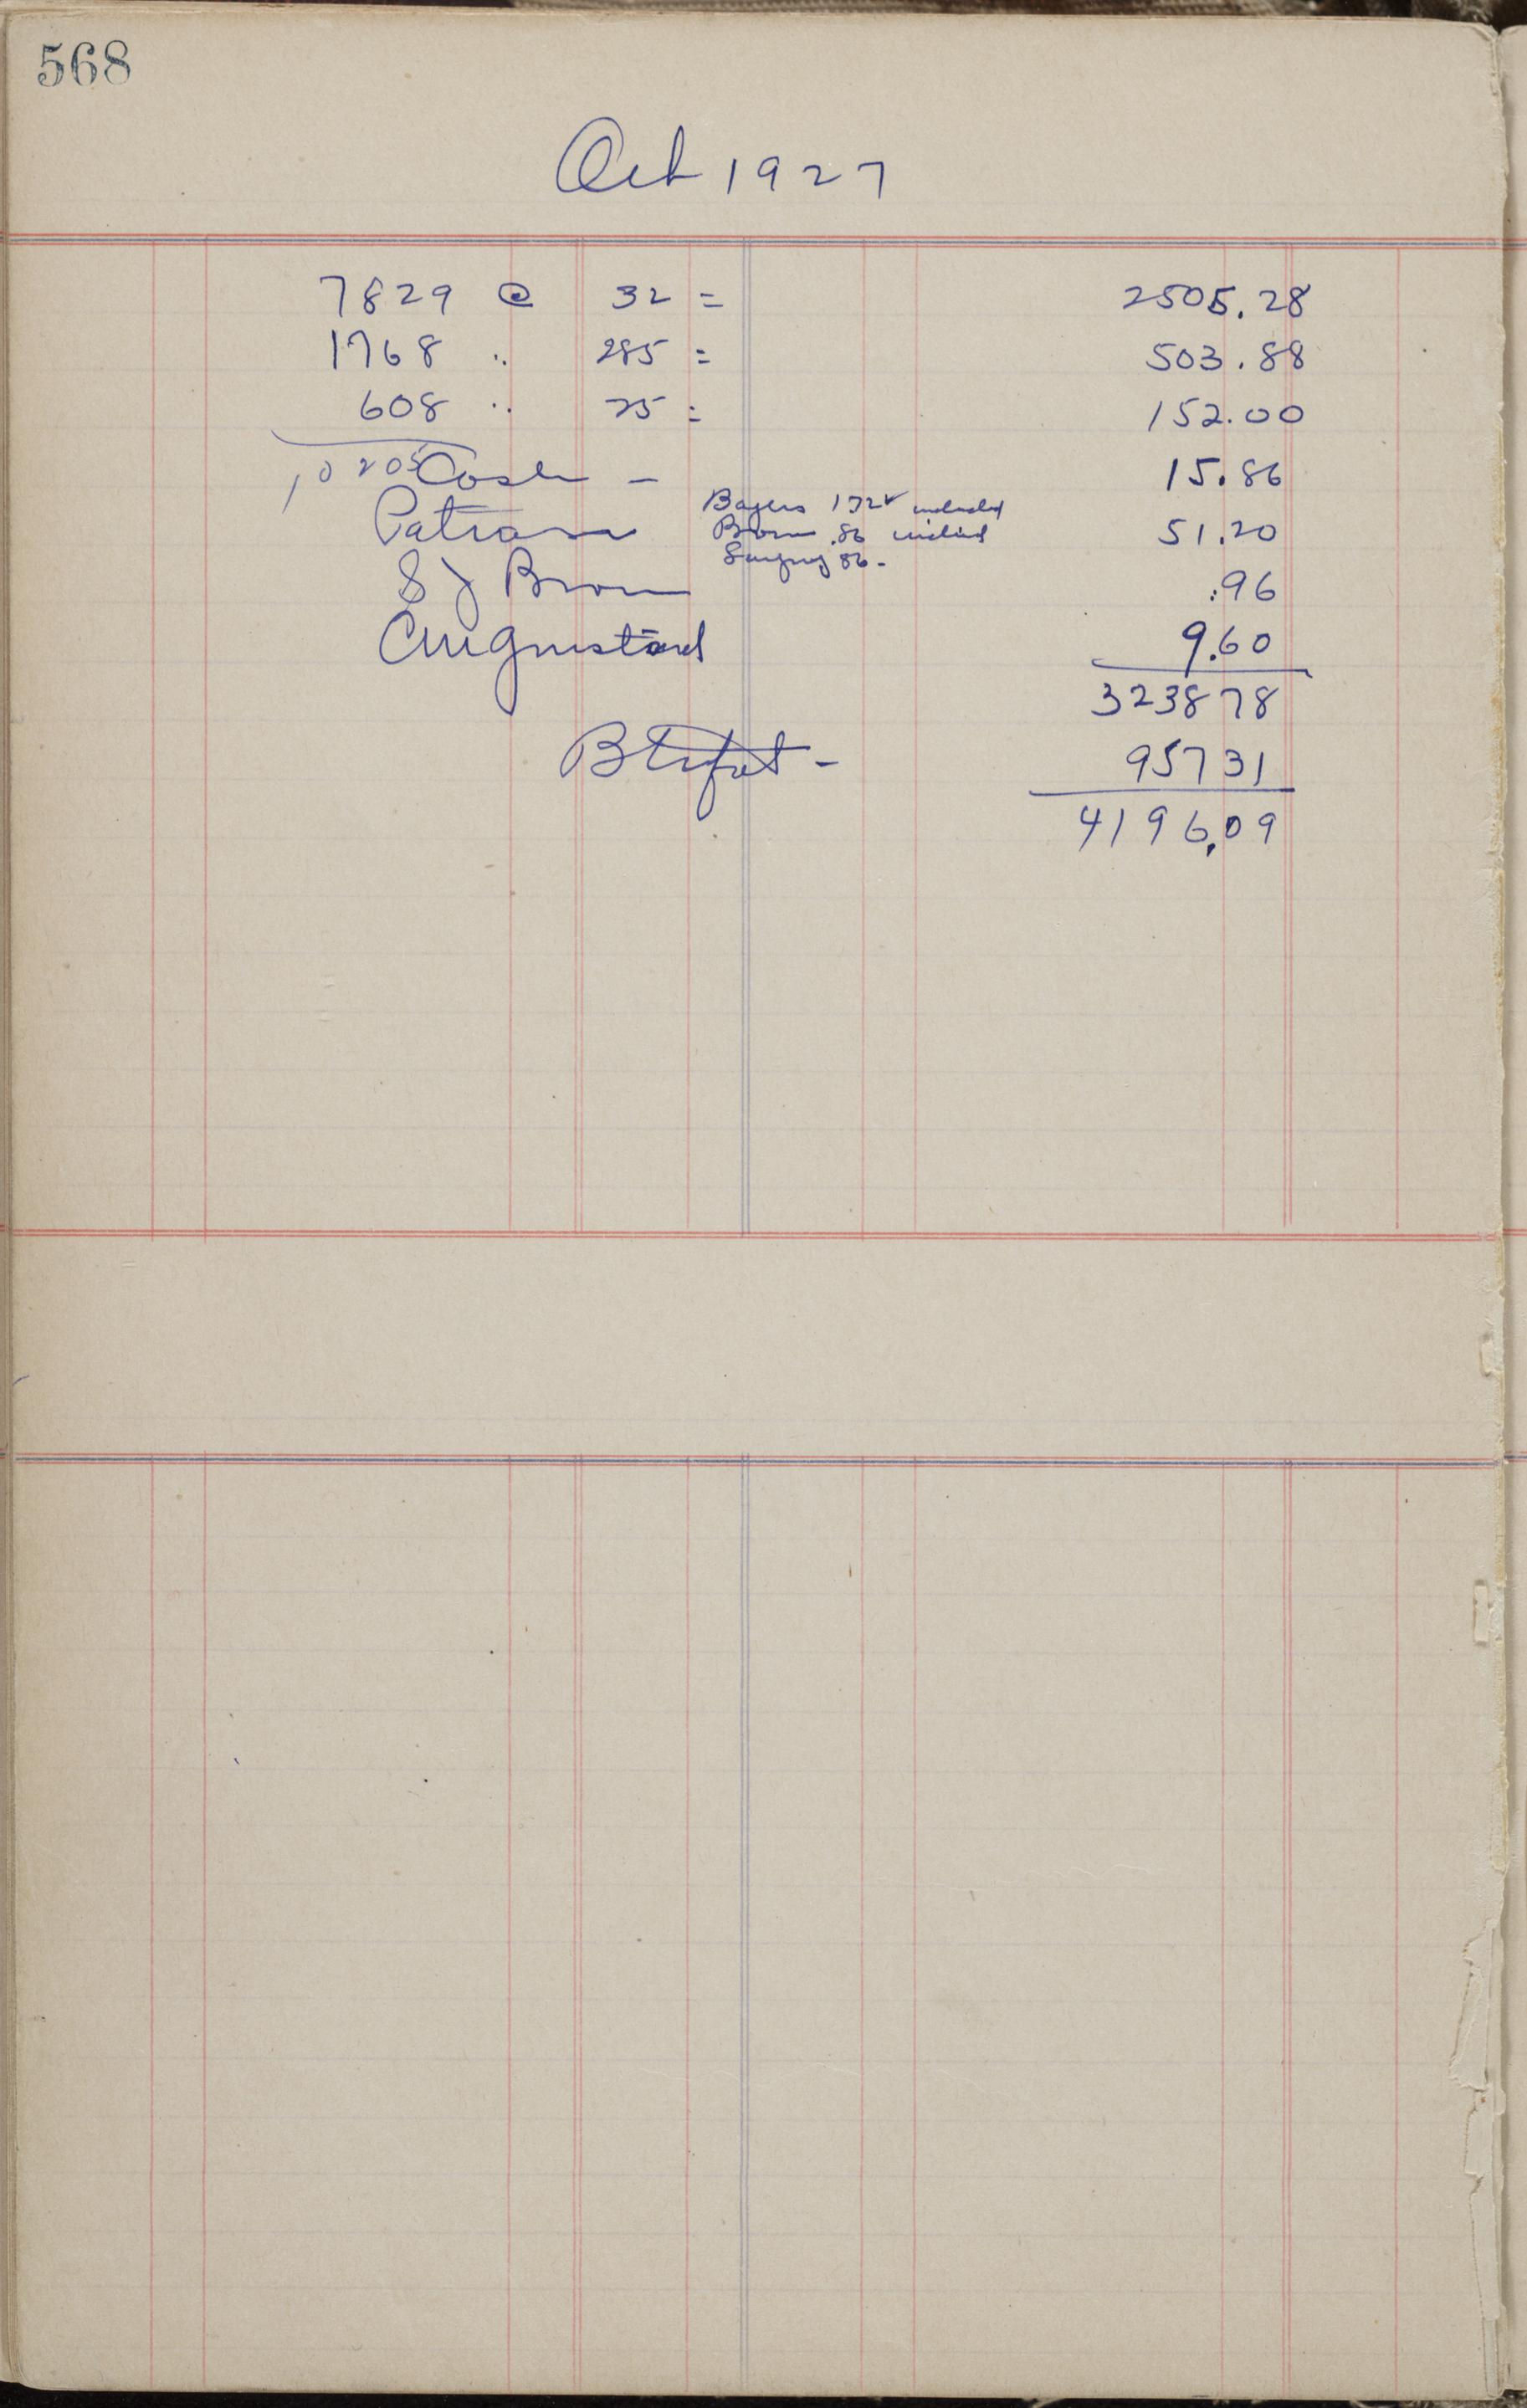 568
Oct 1927
7829 @ 32 = 2505.28
1768 " 285 = 503.88
608 " 25 = 152.00
10205 Cash - 15.86
Patrons 51.20
Bayers 172 included
Brown .86 included
86 -
S J Brown .96
9.60
323878
95731
4196.09